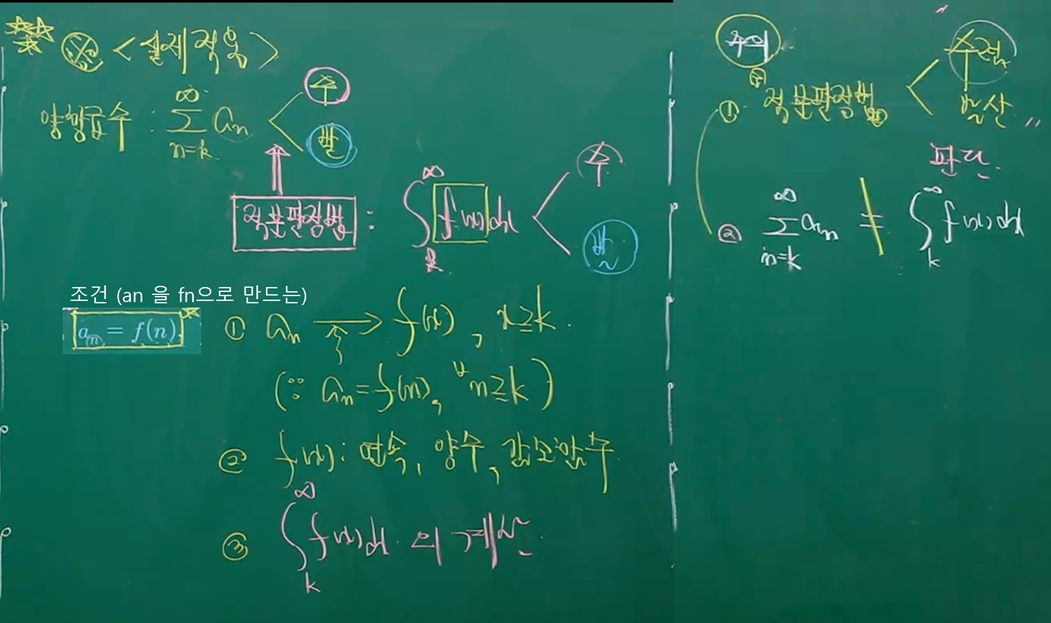 ※ <실제 적용>
양항급수 : ∞∑n=k an < 수 발
적분판정법 : ∫k^∞ f(x)dx < 수 발
조건 (an 을 fn으로 만드는)
an = f(n).
① an → f(x), x≥k.
(∵ an = f(n), ∀n≥k)
② f(x): 연속, 양수, 감소함수
③ ∫k^∞ f(x)dx 의 계산.
주의
① 적분판정법 < 수렴 발산
판단.
② ∞∑n=k an ≠ ∫k^∞ f(x)dx